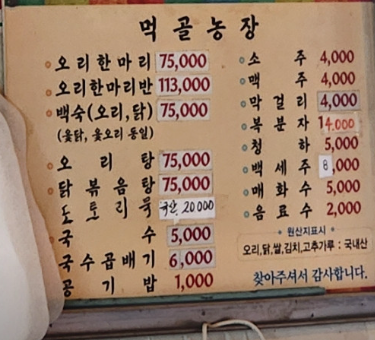 먹골농장
오리한마리 75,000
오리한마리반 113,000
백숙(오리,닭) 75,000
(옻닭, 옻오리 동일)
오리탕 75,000
닭볶음탕 75,000
도토리묵 20000
국수 5,000
국수곱배기 6,000
공기밥 1,000
소주 4,000
맥주 4,000
막걸리 4,000
복분자 14.000
청하 5,000
백세주 8,000
매화수 5,000
음료수 2,000
원산지표시
오리,닭,쌀,김치,고추가루 : 국내산
찾아주셔서 감사합니다.